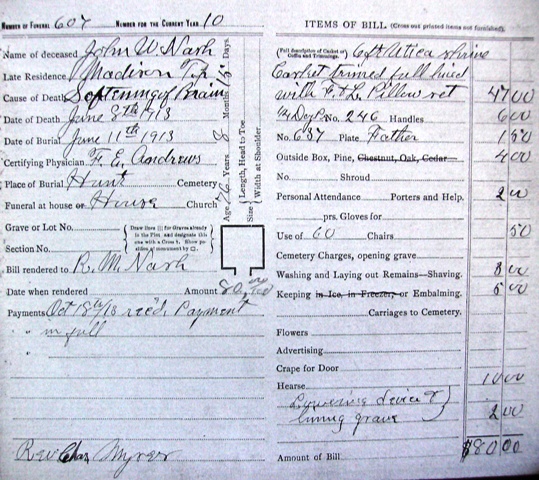 NUMBER OF FUNERAL 607 NUMBER FOR THE CURRENT YEAR 10
Name of deceased John W. Nash
Late Residence Madison Tp.
Cause of Death Softening of Brain
Date of Death June 8th 1913
Date of Burial June 11th 1913
Certifying Physician F. E. Andrews
Place of Burial Hunt Cemetery
Funeral at house or House Church
Age 76 Years 8 Months 15 Days.
Size { Length, Head to Toe
Width at Shoulder
Grave or Lot No.
Section No.
Draw lines for Graves already in the Plot, and designate this one with a Cross †. Show position of monument by
Bill rendered to R. M. Nash
Date when rendered Amount 80, no/100
Payments Oct 18th/13 recd. Payment
" " in full
" "
Rev Chas Myres
ITEMS OF BILL (Cross out printed items not furnished).
(Full description of Casket or Coffin and Trimmings). 6ft Utica shrine
Casket trimed full lined
with F. & L. Pillow set 47 00
No. 246 Handles 6 00
No. 637 Plate Father 1 50
Outside Box, Pine, Chestnut, Oak, Cedar 4 00
No. Shroud
Personal Attendance Porters and Help. 2 00
prs. Gloves for
Use of 60 Chairs 50
Cemetery Charges, opening grave
Washing and Laying out Remains—Shaving. 8 00
Keeping in Ice, in Freezer, or Embalming. 5 00
Carriages to Cemetery.
Flowers
Advertising
Crape for Door
Hearse 10 00
Lowering device &
lining grave } 2 00
Amount of Bill $80 00